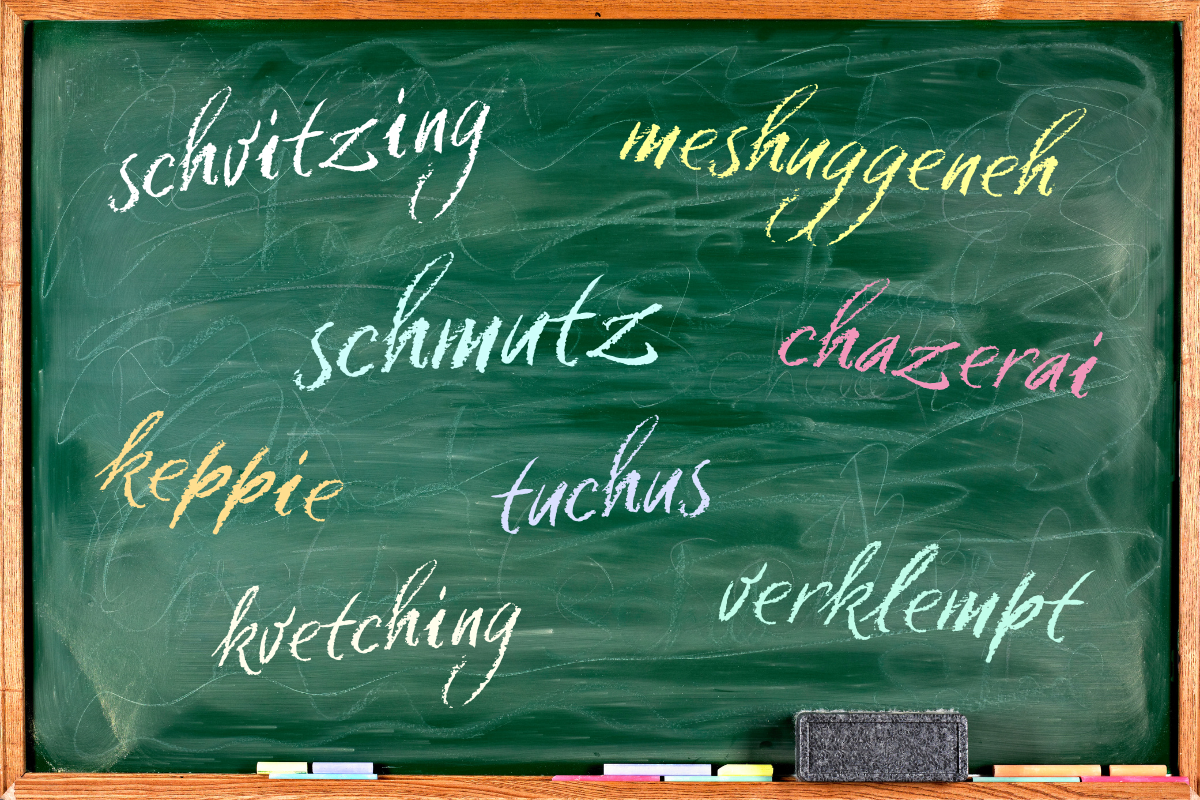 schvitzing
meshuggeneh
schmutz
chazerai
keppie
tuchus
kvetching
verklempt